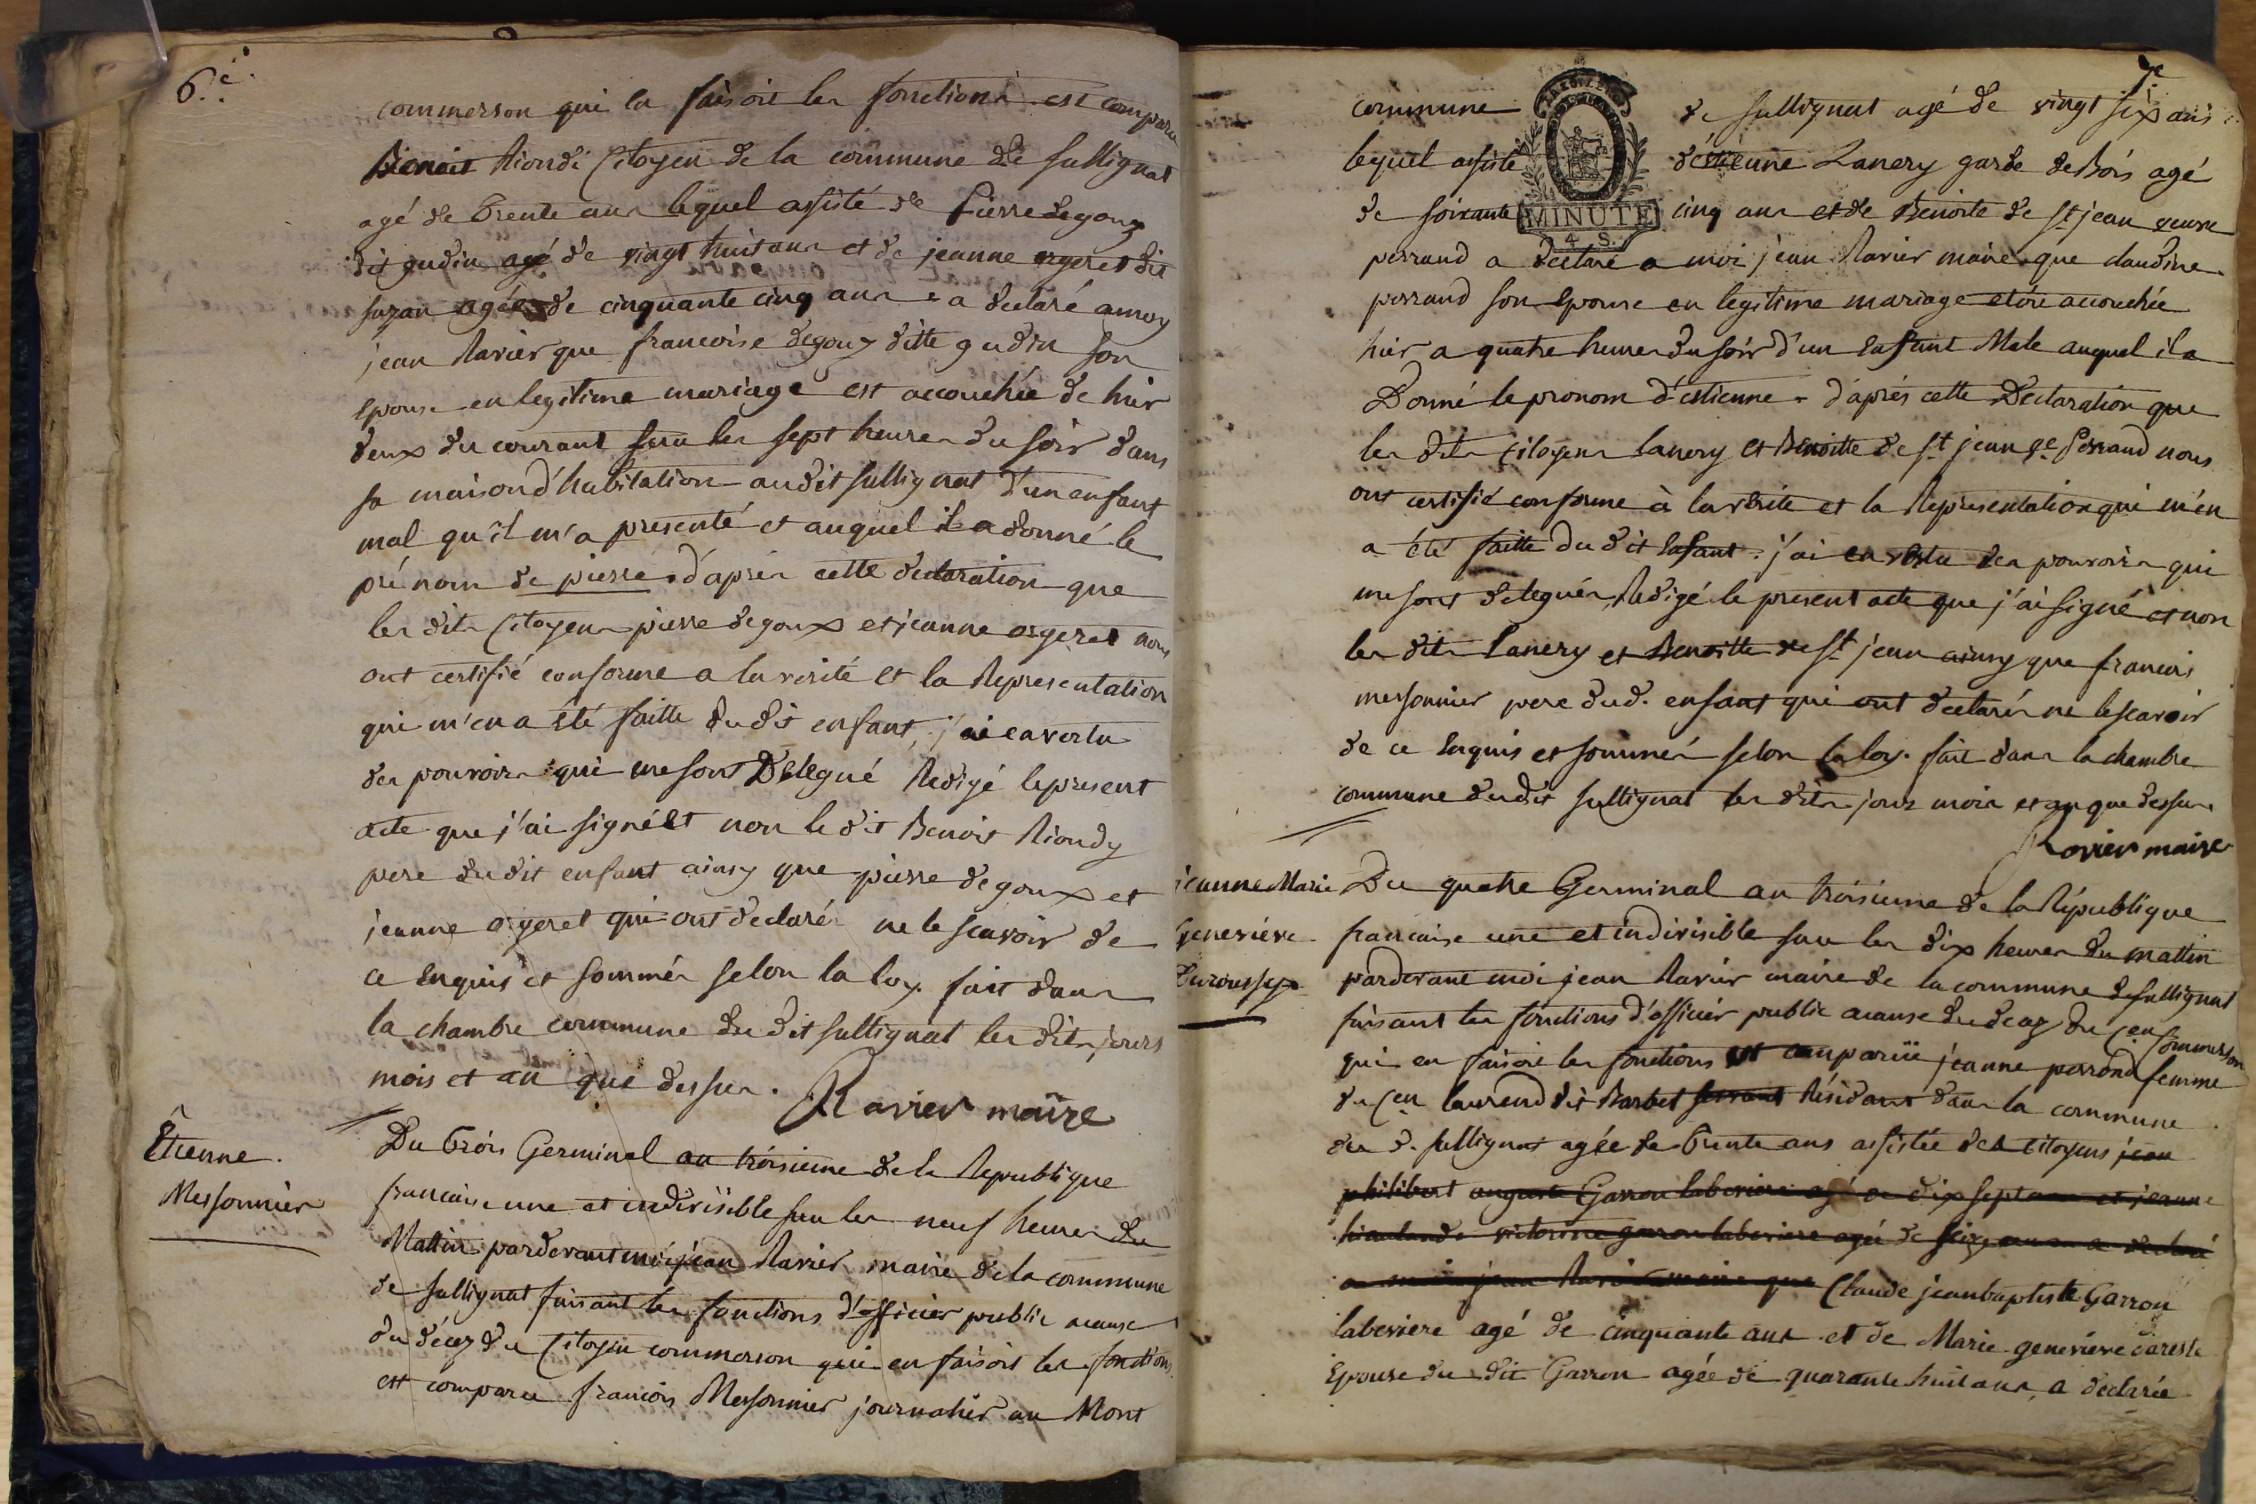 6.e
commerson qui en faisoit les fonctions est comparu
Benoit Riondi Citoyen de la commune de Sullignat
agé de Trente ans lequel assisté de Pierre degoux
dit gudin agé de vingt huit ans et de jeanne orgeret dit
suzan agée de cinquante cinq ans a declaré a moy
jean Ravier que francoise degoux ditte gudin son
epouse en legitime mariage est accouchée de hier
deux du courant sur les sept heures du soir dans
sa maison d'habitation audit sullignat d'un enfant
mal qu'il m'a presenté et auquel il a donné le
prénom de pierre d'après cette declaration que
les dits Citoyens pierre degoux et jeanne orgeret nous
ont certifié conforme a la verité et la Representation
qui m'en a été faitte dudit enfant, j'ai en vertu
des pouvoirs qui me sont Delegué Redigé le present
acte que j'ai signé et non le dit Benoit Riondy
pere dudit enfant ainsy que pierre degoux et
jeanne orgeret qui ont declarés ne le scavoir de
ce enquis et sommés selon la loy. fait dans
la chambre commune du dit sullignat les dits jours
mois et an que dessus.
Ravier maire
Étienne
Messonnier
Du trois Germinal an troisieme de la Republique
francaise une et indivisible sur les neuf heures du
Mattin pardevant moi jean Ravier maire de la commune
de sullignat faisant les fonctions d'officier public acause
du décez du Citoyen commerson qui en faisoit les fonctions
est comparu francois Messonnier journalier au Mont
7e
commune de sullignat agé de vingt six ans
lequel assisté d'étienne Lanery garde de Bois agé
MINUTE
4 S.
de soixante cinq ans et de Benoite de st jean veuve
perrand a declaré a moi jean Ravier maire que claudine
perrand son Epouse en legitime mariage etoit accouchée
hier a quatre heures du soir d'un Enfant Male auquel il a
Donné le pronom d'estienne. d'après cette Declaration que
les dits Citoyens lanery et Benoitte de st jean ve Perrand nous
ont certifié conforme à la vérité et la Representation qui m'en
a été faitte du dit Enfant. j'ai en vertu des pouvoirs qui
me sont delegués, Redigé le present acte que j'ai signé et non
les dits Lanery et Benoitte de st jean ainsy que francois
messonnier pere dud. enfant qui ont declarés ne le scavoir
de ce Enquis et sommés selon la loy. fait dans la chambre
commune dudit sullignat les dits jours mois et an que dessus.
Ravier maire
jeanne Marie
Genevieve
Du quatre Germinal an troisieme de la République
francaise une et indivisible sur les dix heures du mattin
pardevant moi jean Ravier maire de la commune de sullignat
faisant les fonctions d'officier public acause du decez du cen Commerson
qui en faisoit les fonctions est comparüe jeanne perrond femme
du cen laurend dit Barbet servant Résidant dans la commune
du d. sullignat agée de Trente ans assistée des citoyens jean
philibert auguste Garron laberiere agé de dix sept ans et jeanne
victorine garron laberiere agée de seize ans a declaré
a moi jean Ravier maire que Claude jeanbaptiste Garron
laberiere agé de cinquante ans et de Marie genevieve dareste
Epouse du dit Garron agée de quarante huit ans a declarée